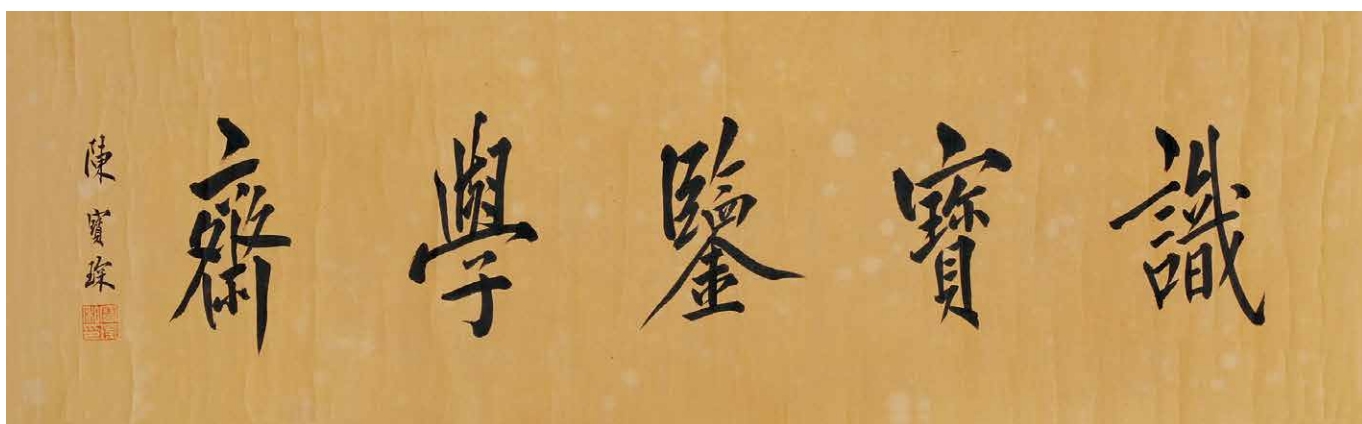 識寶鑒學齋
陳寶琛